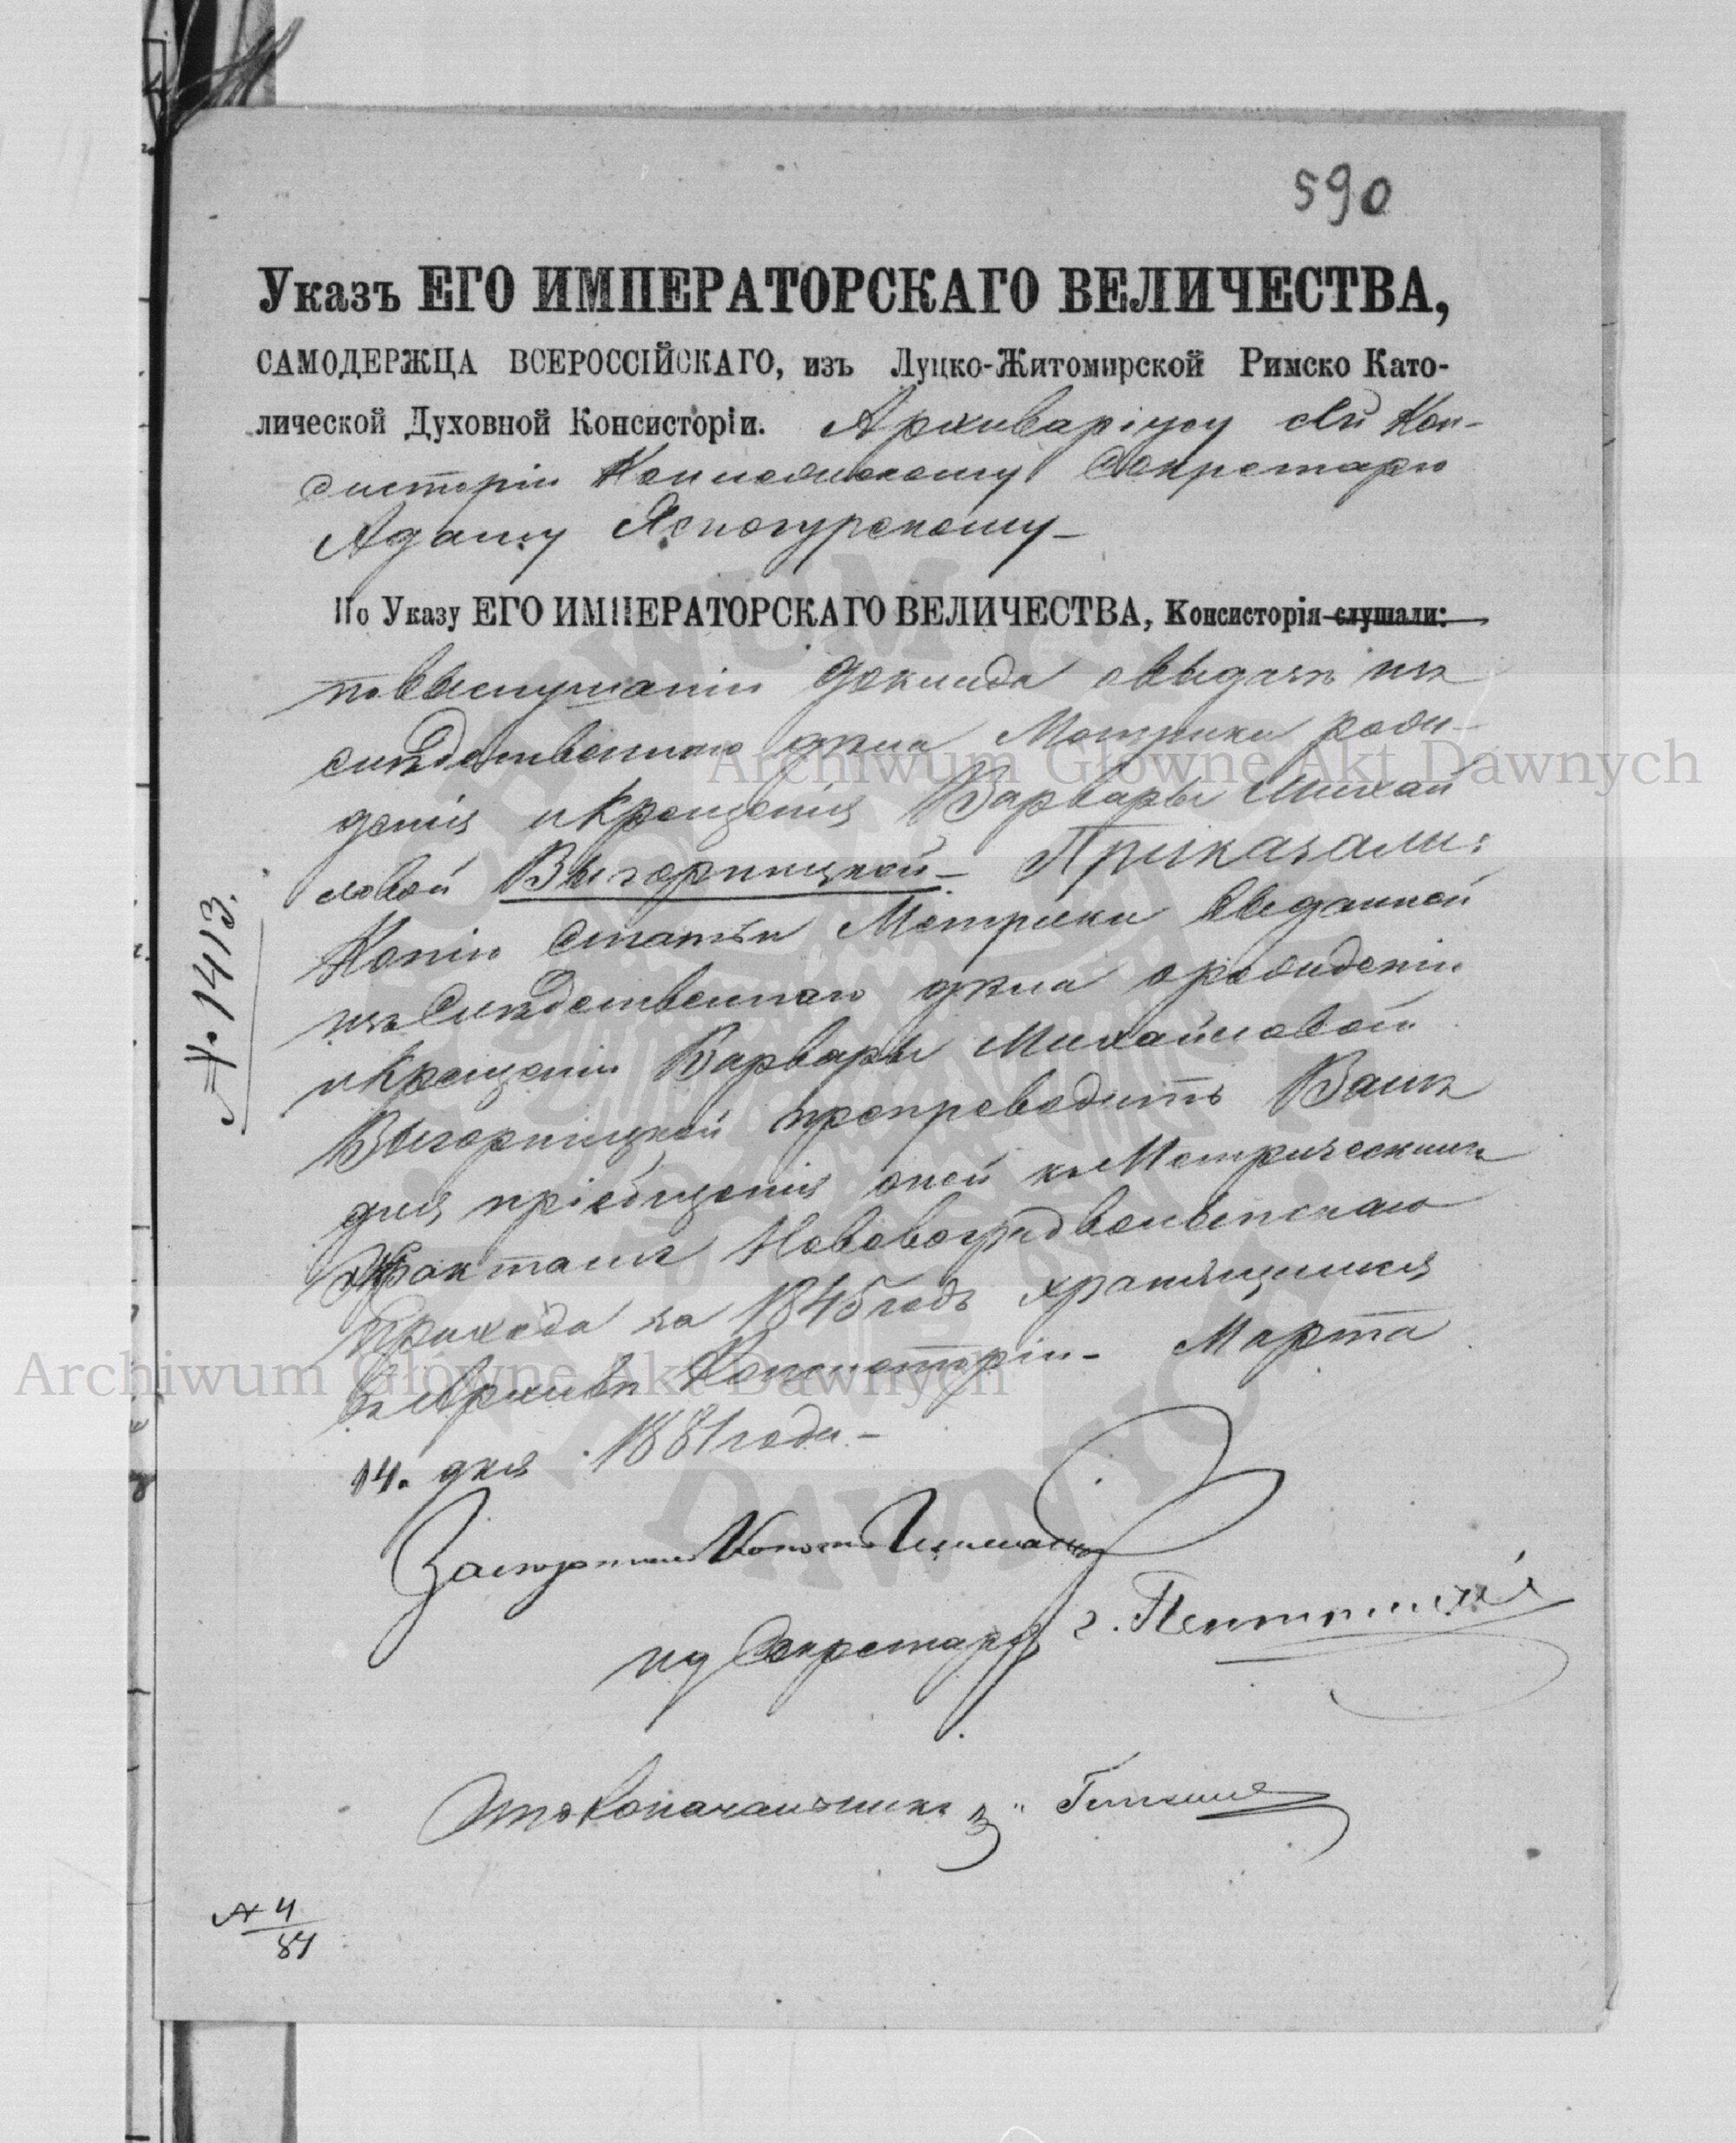 590
Указъ ЕГО ИМПЕРАТОРСКАГО ВЕЛИЧЕСТВА,
САМОДЕРЖЦА ВСЕРОССІЙСКАГО, изъ Луцко-Житомирской Римско Като-
лической Духовной Консисторіи. Архиваріусу сей Кон-
систоріи Секретарю
Адаму Ясногурскому –
По Указу ЕГО ИМПЕРАТОРСКАГО ВЕЛИЧЕСТВА, Консисторія слушали:
по выслушаніи доклада о выдачѣ изъ
слѣдственнаго дѣла Метрики рож-
денія и крещенія Варвары Михай
ловой Выгорницкой – Приказали:
Копію Статьи Метрики выданной
изъ Слѣдственнаго дѣла о рожденіи
и крещеніи Варвары Михайловой
Выгорницкой препроводить Вамъ
для пріобщенія оной къ Метрическимъ
Экстрактамъ Нововоградволынскаго
Прихода за 1845 годъ хранящимся
въ Архивѣ Консисторіи – Марта
14. дня 1881 года –
№ 1413.
Засѣдатель
ид Секретаря
Столоначальникъ
№ 4/81
Archiwum Główne Akt Dawnych
Archiwum Główne Akt Dawnych